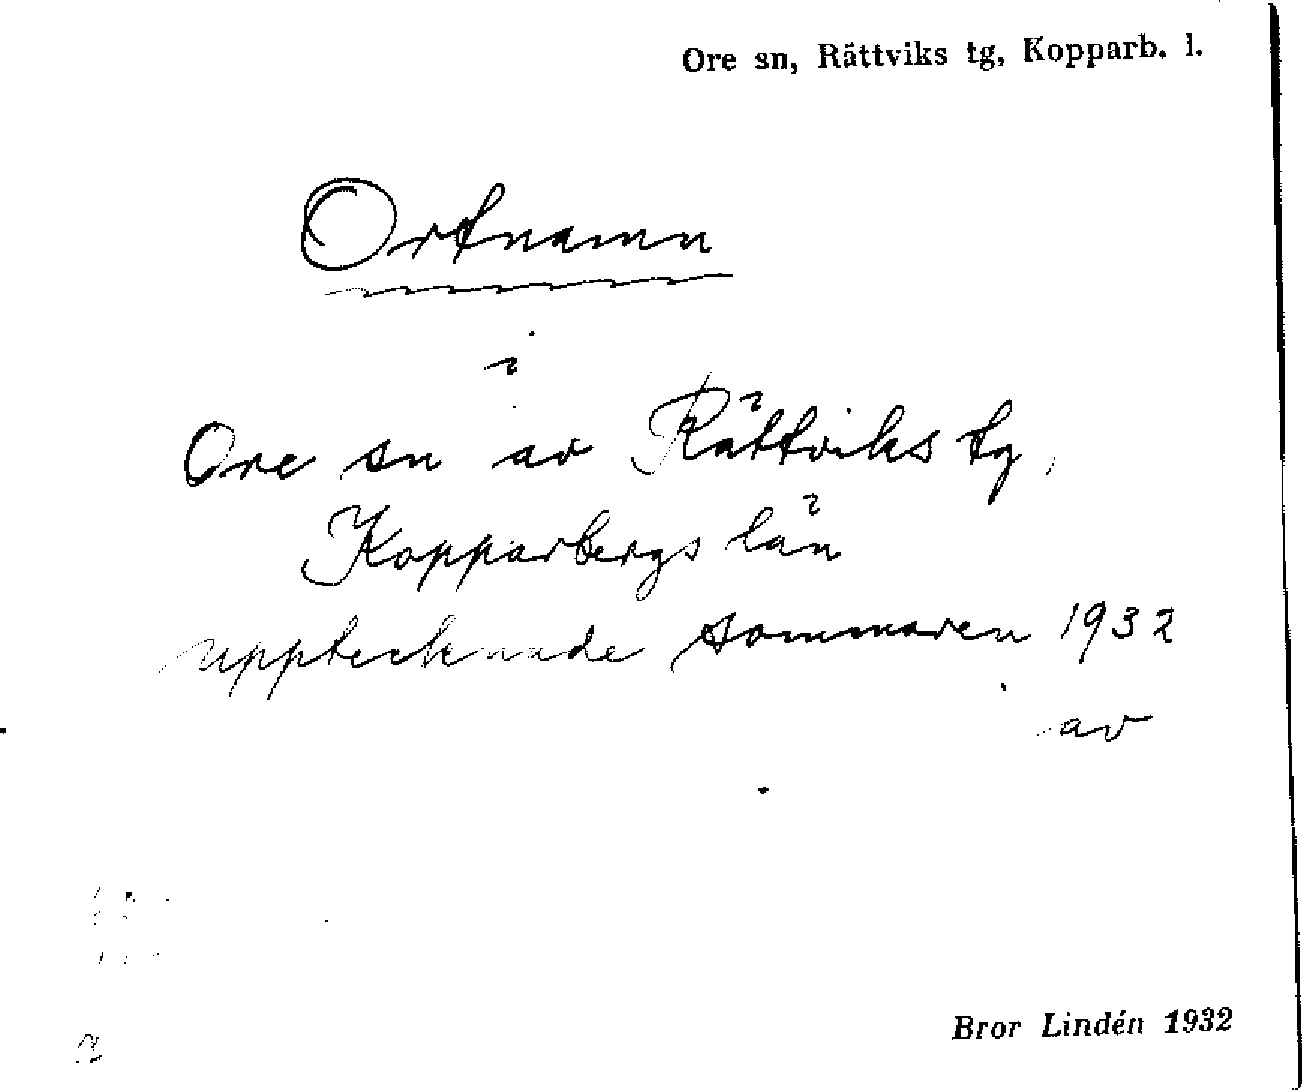 Ore sn, Rättviks tg, Kopparb. l.
Ortnamn
i
Ore sn av Rättviks tg,
Kopparbergs län
upptecknade sommaren 1932
av
Bror Lindén 1932